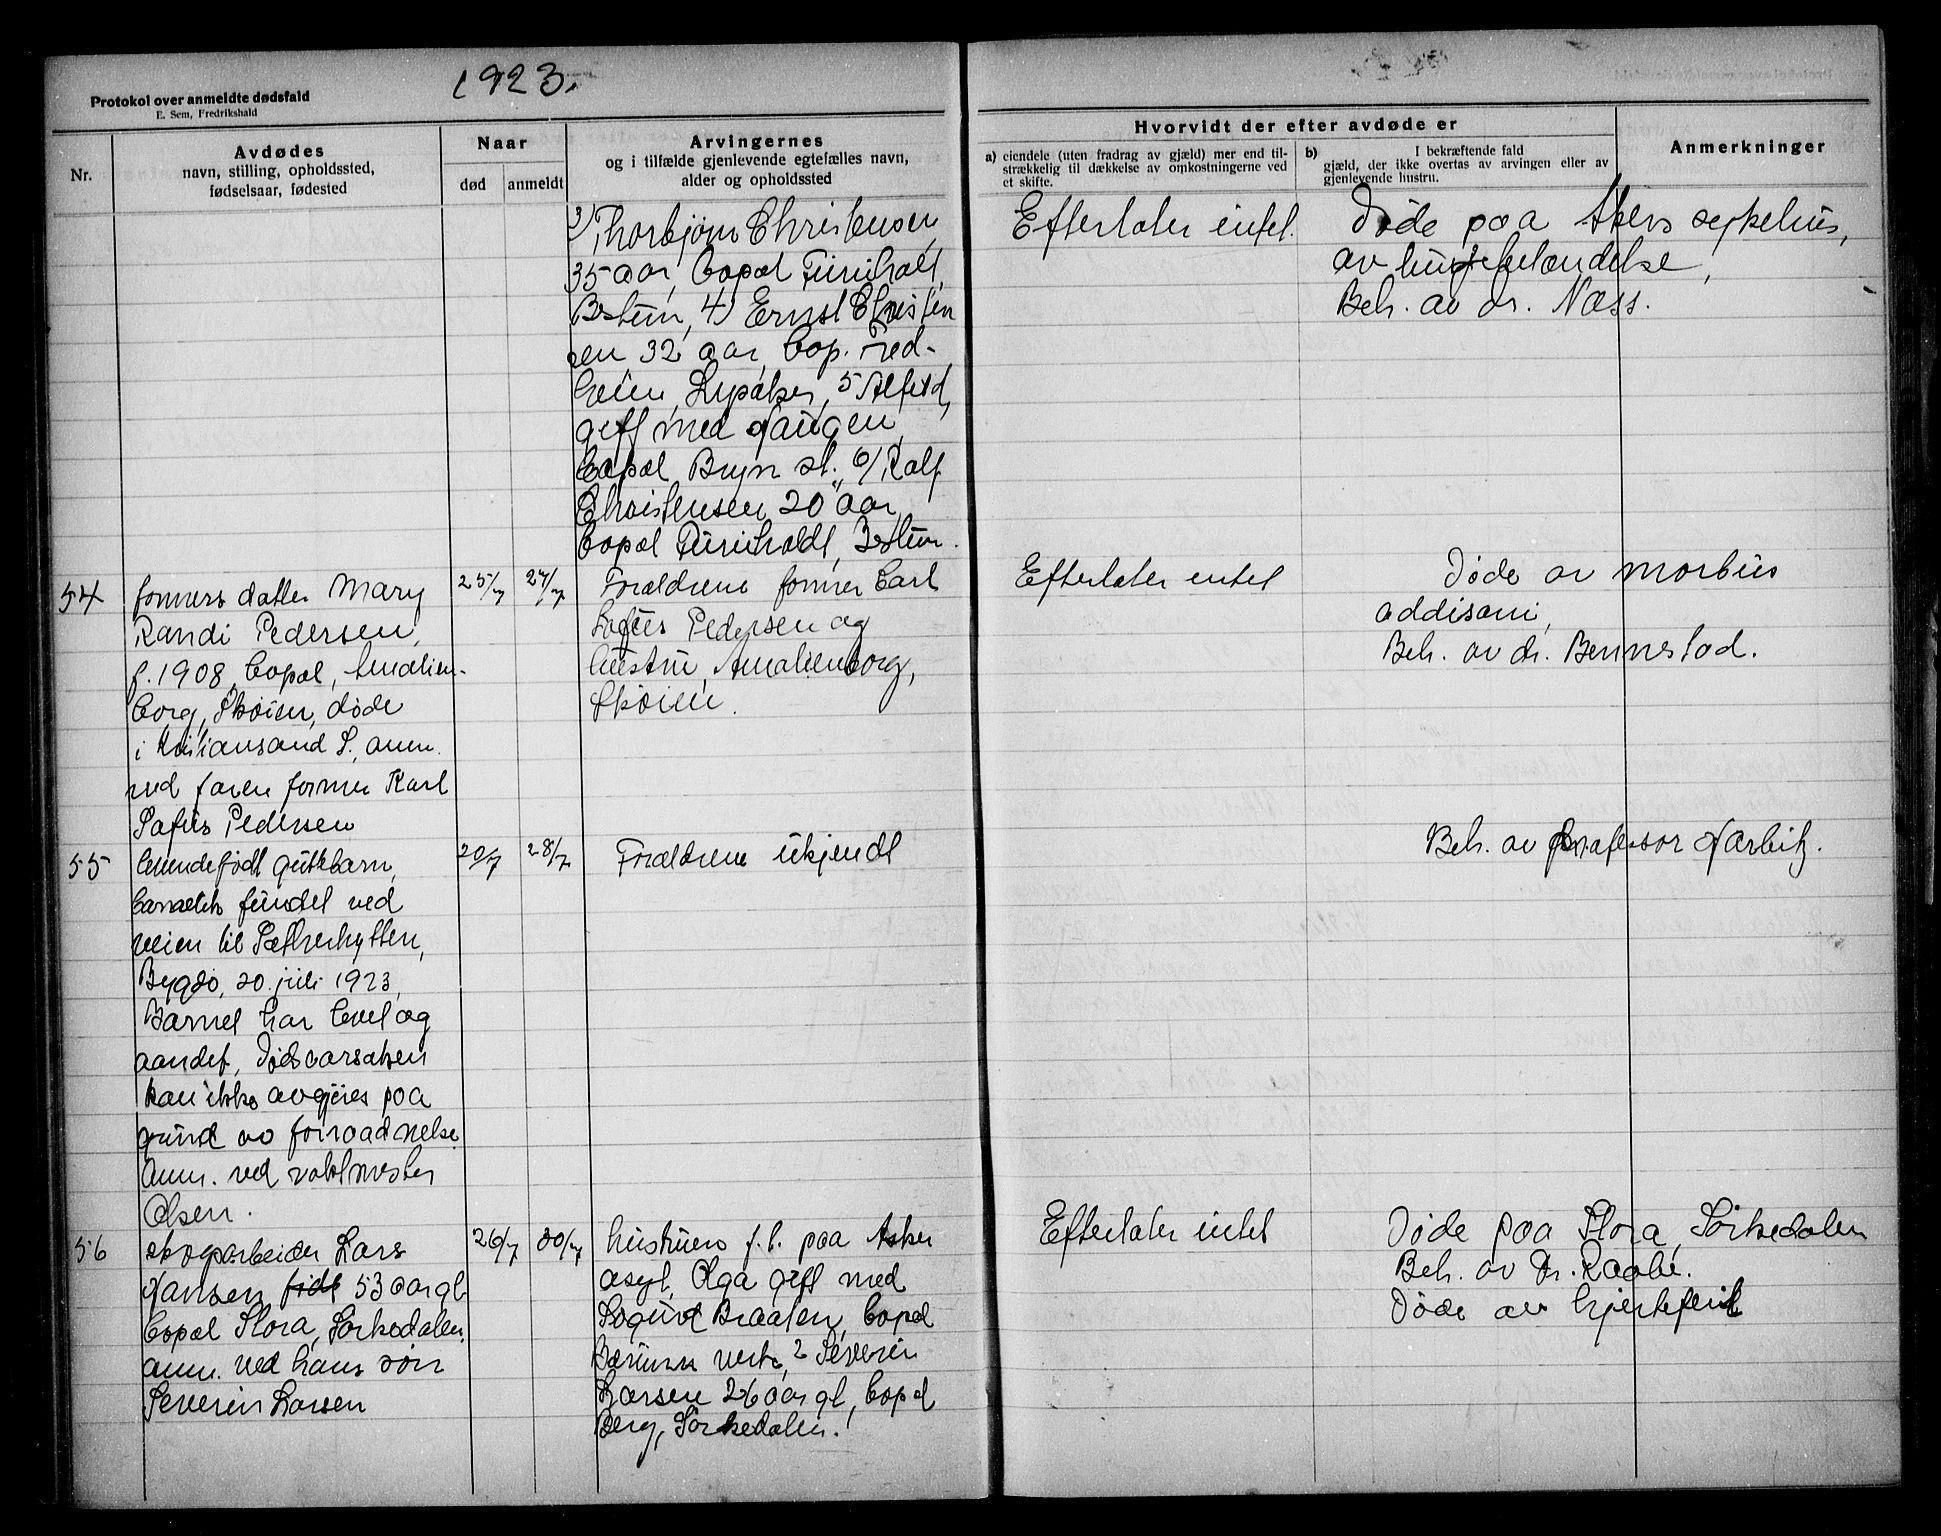 1923.
Protokol over anmeldte dødsfald
E. Sem, Fredrikshald
Nr.
Avdødes
navn, stilling, opholdssted,
fødselsaar, fødested
Naar
død
anmeldt
Arvingernes
og i tilfælde gjenlevende egtefælles navn,
alder og opholdssted
Hvorvidt der efter avdøde er
a) eiendele (uten fradrag av gjæld) mer end til-
strækkelig til dækkelse av omkostningerne ved
et skifte.
b) I bekræftende fald
gjæld, der ikke overtas av arvingen eller av
gjenlevende hustru.
Anmerkninger
3) Thorbjørn Christensen
35 aar, bopæl Furuholt,
Bestum, 4) Ernst Christen
sen 32 aar, bop. Fred-
heim, Lysaker, 5 Alfild,
gift med Haugen
bopæl Bryn st., 6/ Ralf
Christensen 20 aar
bopæl Furuholdt, Bestum.
Efterlater intet.
Døde paa Akers sykehus,
av lungebetændelse,
Beh. av dr. Næss.
54
formers datter Mary
Randi Pedersen,
f. 1908, bopæl, Amalien-
borg, Skøien, døde
i Kristiansand S., anm.
ved faren former Karl
Lafus Pedersen
25/7
27/7
Forældrene former Carl
Lafus Pedersen og
hustru, Amalienborg,
Skøien.
Efterlater intet
Døde av morbus
addisoni,
Beh. av dr. Bennestad.
55
Nyfødt guttebarn,
fundet ved
veien til Sæterhytten,
Bygdø, 20. juli 1923,
Barnet har levet og
aandet, Dødsaarsaken
kan ikke avgjøres paa
grund av forraadnelse
Anm. ved vaktmester
Olsen.
20/7
28/7
Forældrene ukjendt
Beh. av professor Harbitz.
56
skogarbeider Lars
Hansen født 53 aar gl.
bopæl Slora, Sørkedalen.
anm. ved hans søn
Severin Larsen
26/7
30/7
hustruen f.t. paa Asker
asyl, Olga gift med
Sigurd Braaten, bopæl
Bærums verk, 2 Severin
Larsen 26 aar gl, bopæl
Berg, Sørkedalen.
Efterlater intet
Døde paa Slora, Sørkedalen
Beh. av Dr. Raabe.
Døde av hjertefeil